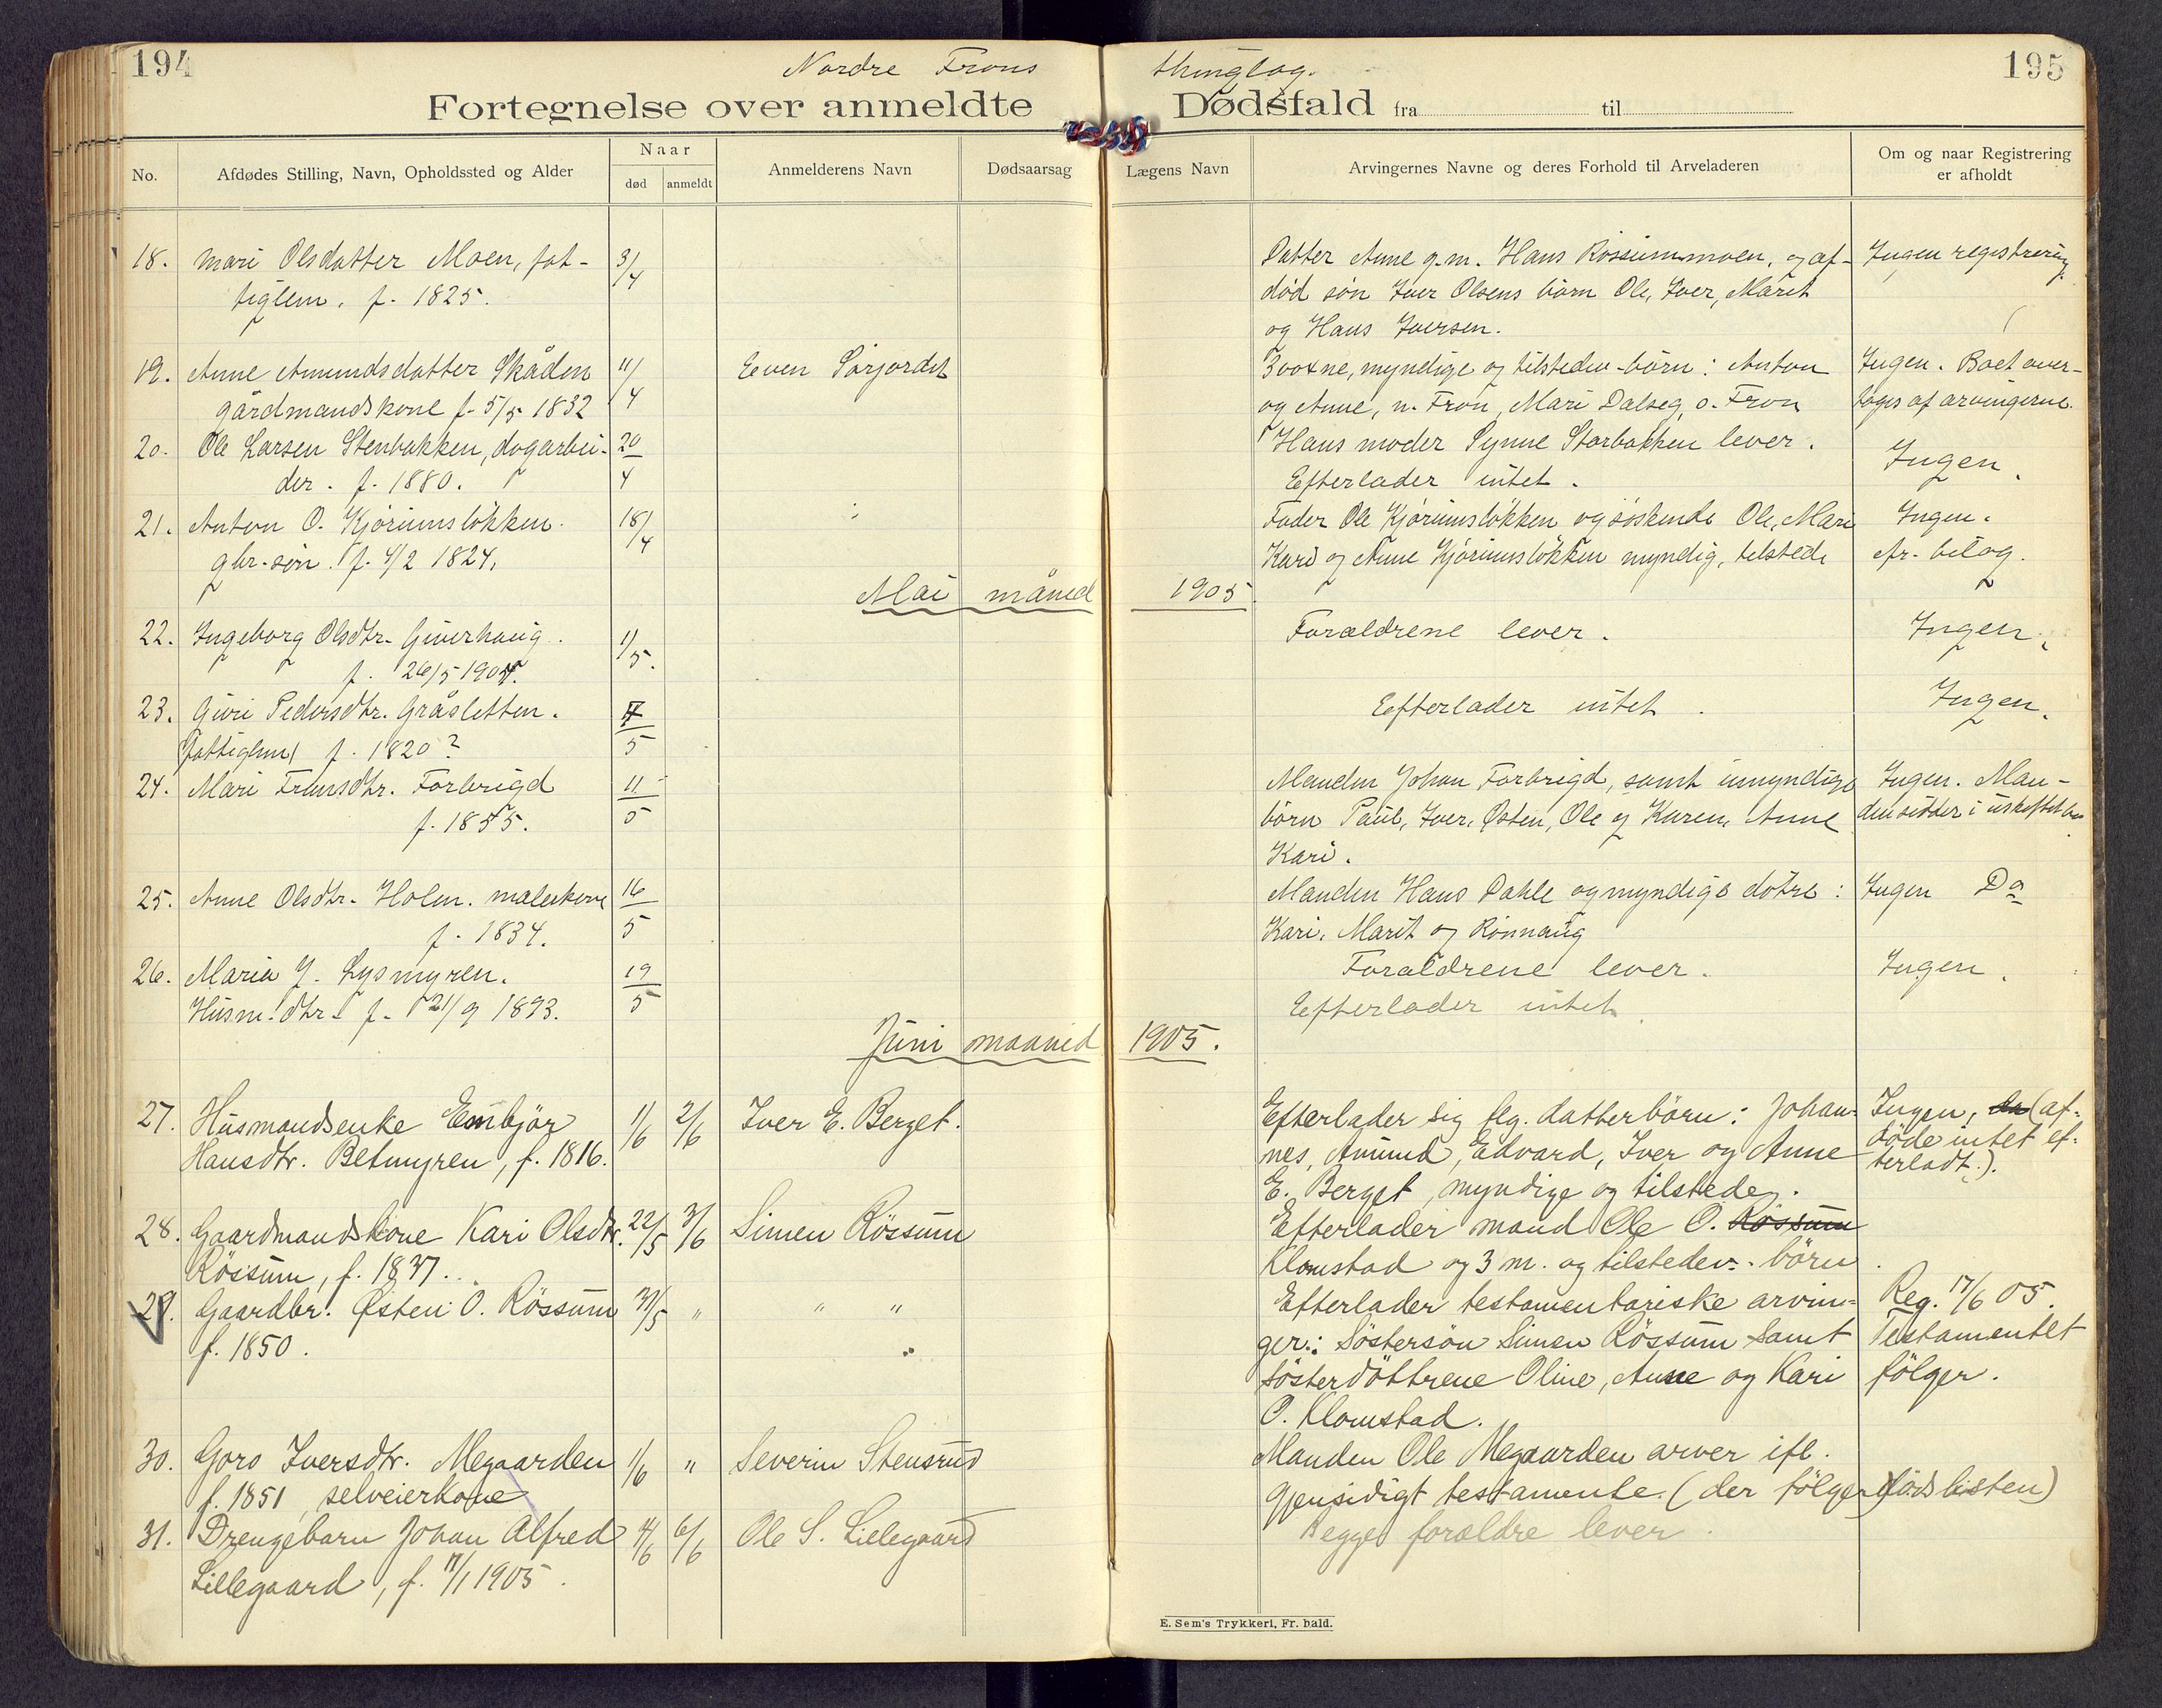 194
Nordre Frons thinglag.
195
Fortegnelse over anmeldte Dødsfald fra til
No.
Afdødes Stilling, Navn, Opholdssted og Alder
Naar
død
anmeldt
Anmelderens Navn
Dødsaarsag
Lægens Navn
Arvingernes Navne og deres Forhold til Arveladeren
Om og naar Registrering
er afholdt
18. Mari Olsdatter Moen, fat- 3/4 Datter Anne g.m. Hans Rössummoen, og af- Ingen registrering
tiglem. f. 1825. død søn Iver Olsens børn Ole, Iver, Marit
og Hans Iversen.
19. Anne Amundsdatter Skåden 11/4 Even Sörjordet 3 voxne, myndige og tilstedev. børn: Anton Ingen. Boet over-
gårdmandskone f. 5/5 1832 og Anne, n. Fron, Mari Dalseg, s. Fron tages af arvingerne.
20. Ole Larsen Stenbakken, dagarbei- 20/4 Hans moder Synne Storbakken lever. Ingen.
der. f. 1880. Efterlader intet.
21. Anton O. Kjörumslökken. 18/4 Fader Ole Kjörumslökken og söskende Ole, Mari Ingen.
gbr. sön. f. 4/2 1824. Kari og Anne Kjörumslökken myndig, tilstede
Mai måned 1905
22. Ingeborg Olsdtr. Giverhaug. 1/5. Forældrene lever. Ingen.
f. 26/5 1904.
23. Guri Pedersdtr. Gråsletten. 7/5 Efterlader intet. Ingen.
(fattiglem) f. 1820?
24. Mari Fransdtr. Forbrigd 11/5 Manden Johan Forbrigd, samt umyndige Ingen. Man-
f. 1855. børn Paul, Iver, Østen, Ole og Karen, Anne den sidder i uskiftet bo
Kari.
25. Anne Olsdtr. Holen. malerkone 16/5 Manden Hans Dahle og myndige døtre: Ingen Do
f. 1834. Kari, Marit og Rönnaug
26. Maria J. Lysmyren. 19/5 Forældrene lever. Ingen.
Husm. dtr. f. 21/9 1893. Efterlader intet.
Juni maaned 1905.
27. Husmandsenke Embjör 1/6 2/6 Iver E. Berget. Efterlader sig flg. datterbörn: Johan- Ingen, (af-
Hansdtr. Betmyren, f. 1816. nes, Amund, Edvard, Iver og Anne döde intet ef-
E. Berget, myndige og tilstede. terladt.).
28. Gaardmandskone Kari Olsdtr. 22/5 3/6 Simen Rössum Efterlader mand Ole O. Rössum
Rössum, f. 1837. Klomstad og 3 m. og tilstedev. börn.
29. Gaardbr. Østen O. Rössum 31/5 " " " Efterlader testamentariske arvin- Reg. 17/6 05.
f. 1850. ger: Söstersön Simen Rössum samt Testamentet
sösterdöttrene Oline, Anne og Kari fölger.
O. Klomstad.
30. Goro Iversdtr. Megaarden 1/6 " Severin Stensrud Manden Ole Megaarden arver ifl.
f. 1851, selveierkone gjensidigt testamente. (der fölger dödslisten)
31. Drengebarn Johan Alfred 4/6 6/6 Ole S. Lillegaard Begge forældre lever.
Lillegaard, f. 17/1 1905.
E. Sem's Trykkeri, Fr. hald.